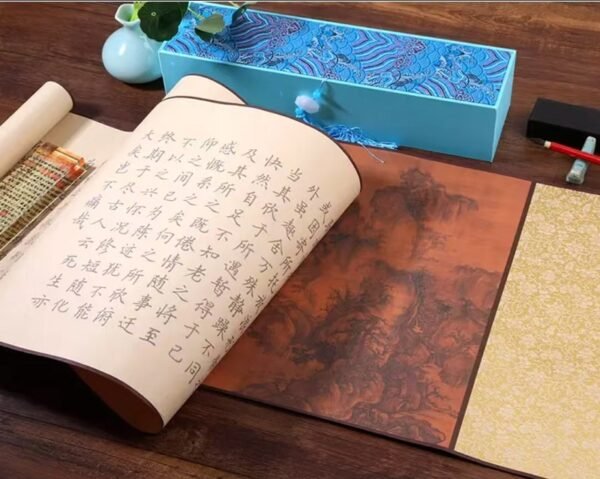 或因寄所
外虽趣舍万殊静躁不同
当其欣于所遇暂得于己
快然自足不知老之将至
及其所之既倦情随事迁
感慨系之矣向之所欣俯
仰之间已为陈迹犹不能
不以之兴怀况修短随化
终期于尽古人云死生亦
大矣岂不痛哉